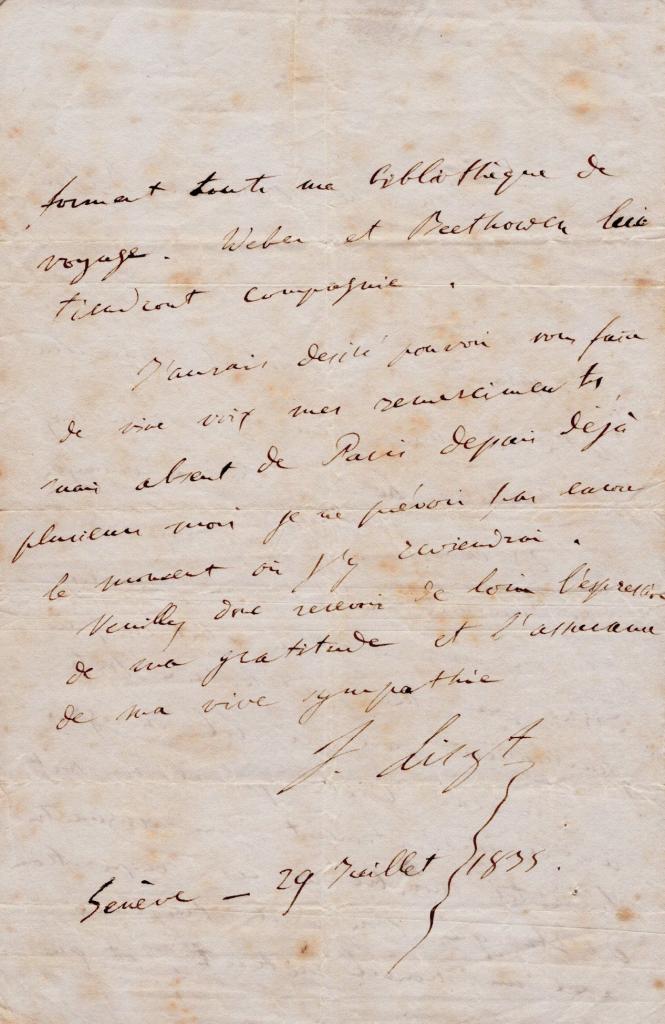 forment toute ma bibliothèque de
voyage. Weber et Beethowen lui
tiendront compagnie.
J'aurais désiré pouvoir vous faire
de vive voix mes remerciments,
mais absent de Paris depuis déjà
plusieurs mois je ne prévois pas encore
le moment où j'y reviendrai.
Veuillez donc recevoir de loin l'expression
de ma gratitude et l'assurance
de ma vive sympathie
F. Liszt
Genève – 29 Juillet 1835.